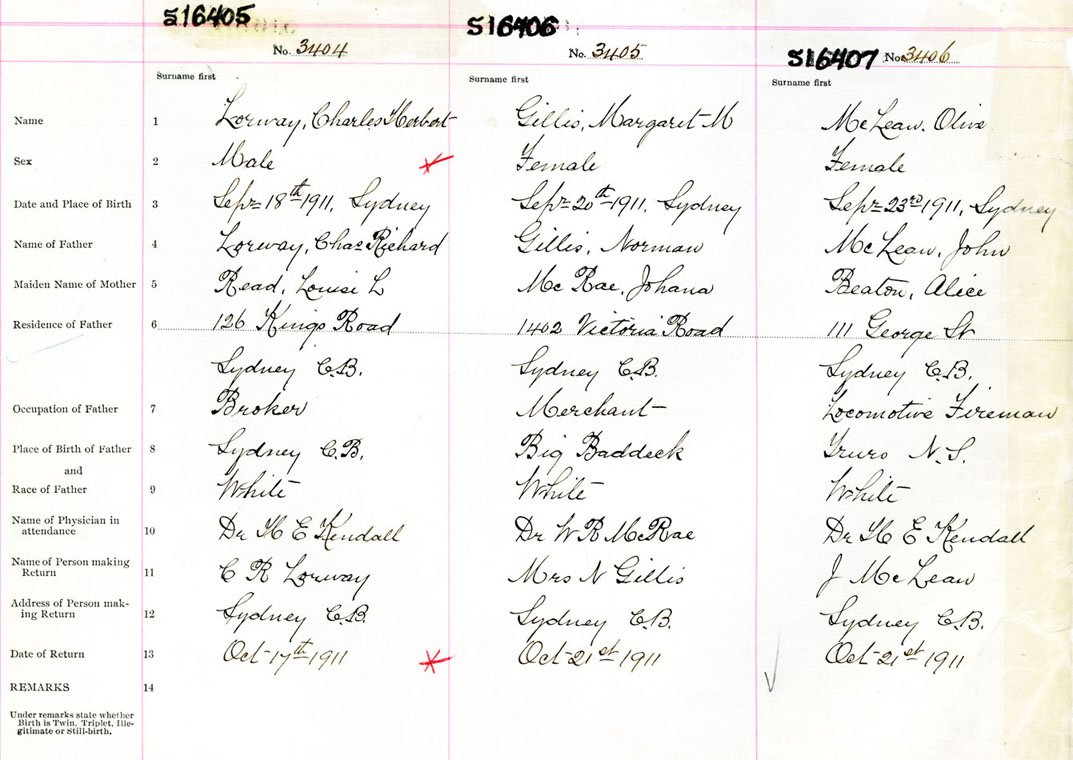 S16405 S16406 S16407
No. 3404 No. 3405 No. 3406
Surname first Surname first Surname first
Name 1 Lorway, Charles Herbert Gillis, Margaret M McLean, Olive
Sex 2 Male Female Female
Date and Place of Birth 3 Sept 18th 1911, Sydney Sept 20th 1911, Sydney Sept 23rd 1911, Sydney
Name of Father 4 Lorway, Chas Richard Gillis, Norman McLean, John
Maiden Name of Mother 5 Read, Louise L McRae, Johana Beaton, Alice
Residence of Father 6 126 Kings Road 1402 Victoria Road 111 George St
Sydney C.B. Sydney C.B. Sydney C.B.
Occupation of Father 7 Broker Merchant Locomotive Fireman
Place of Birth of Father 8 Sydney C.B. Big Baddeck Truro N.S.
and
Race of Father 9 White White White
Name of Physician in
attendance 10 Dr H E Kendall Dr W R McRae Dr H E Kendall
Name of Person making
Return 11 C R Lorway Mrs N Gillis J McLean
Address of Person mak-
ing Return 12 Sydney C.B. Sydney C.B. Sydney C.B.
Date of Return 13 Oct 17th 1911 Oct 21st 1911 Oct 21st 1911
REMARKS 14
Under remarks state whether
Birth is Twin, Triplet, Ille-
gitimate or Still-birth.